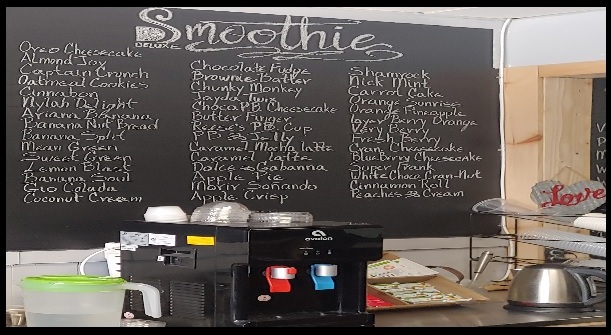 Smoothie
DELUXE
Oreo Cheesecake
Almond Joy
Captain Crunch
Oatmeal Cookies
Cinnabon
Nylah Delight
Ariana Banana
Banana Nut Bread
Banana Split
Mean Green
Sweet Green
Lemon Black
Banana Soul
Guo Colada
Coconut Cream
Chocolate Fudge
Brownie Batter
Chunky Monkey
Jayda Twix
Choco PB Cheesecake
Butter Finger
Reese's P.B. Cup
P.B. & Jelly
Caramel Mocha latte
Caramel latte
Dolce & Gabanna
Apple Pie
Morir Soñando
Apple Crisp
Shamrock
Nick Mint
Carrot Cake
Orange Sunrise
Orange Pineapple
Berry Orange
Very Berry
Berry
Cran Cheesecake
BlueBerry Cheesecake
Super Frank
White Choco Cran-Nut
Cinnamon Roll
Peaches & Cream
Love
avalon